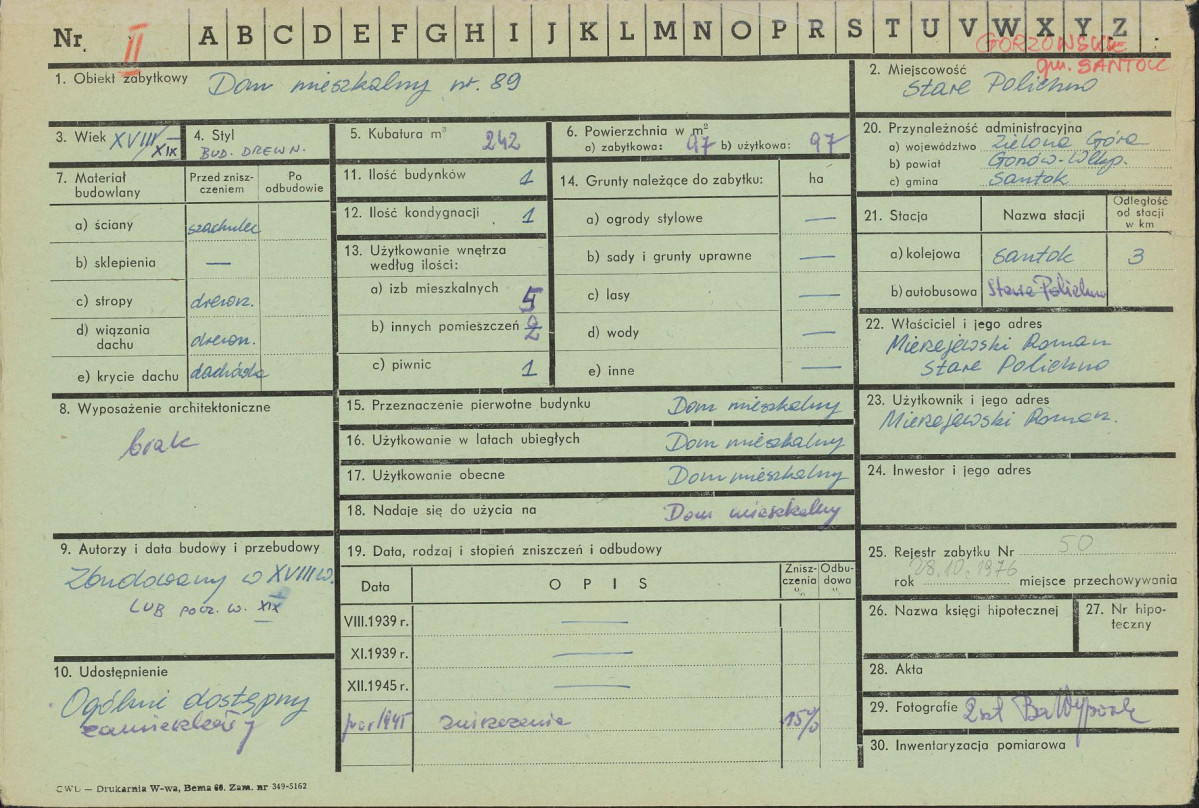 Nr. II A B C D E F G H I J K L M N O P R S T U V W X Y Z
GORZOWSKIE
gm. SANTOK
1. Obiekt zabytkowy Dom mieszkalny nr. 89
2. Miejscowość
Stare Polichno
3. Wiek XVIII/XIX
4. Styl
BUD. DREWN.
5. Kubatura m³ 242
6. Powierzchnia w m²
a) zabytkowa: 97 b) użytkowa: 97
7. Materiał budowlany
Przed zniszczeniem
Po odbudowie
a) ściany szachulec
b) sklepienia —
c) stropy drewn.
d) wiązania dachu drewn.
e) krycie dachu dachówka
8. Wyposażenie architektoniczne
brak
9. Autorzy i data budowy i przebudowy
Zbudowany w XVIII w.
LUB pocz. w. XIX
10. Udostępnienie
Ogólnie dostępny
11. Ilość budynków 1
12. Ilość kondygnacji 1
13. Użytkowanie wnętrza
według ilości:
a) izb mieszkalnych 5
b) innych pomieszczeń 2
c) piwnic 1
14. Grunty należące do zabytku: ha
a) ogrody stylowe —
b) sady i grunty uprawne —
c) lasy —
d) wody —
e) inne —
15. Przeznaczenie pierwotne budynku Dom mieszkalny
16. Użytkowanie w latach ubiegłych Dom mieszkalny
17. Użytkowanie obecne Dom mieszkalny
18. Nadaje się do użycia na Dom mieszkalny
19. Data, rodzaj i stopień zniszczeń i odbudowy
Data
O P I S
Zniszczenia %
Odbudowa %
VIII.1939 r. —
XI.1939 r. —
XII.1945 r. —
1945 zniszczenia 15%
20. Przynależność administracyjna
a) województwo Zielona Góra
b) powiat Gorzów-Wlkp.
c) gmina Santok
21. Stacja
Nazwa stacji
Odległość od stacji w km
a) kolejowa Santok 3
b) autobusowa Stare Polichno
22. Właściciel i jego adres
Mierzejewski Roman
Stare Polichno
23. Użytkownik i jego adres
Mierzejewski Roman.
24. Inwestor i jego adres
25. Rejestr zabytku Nr 50
rok 28.10.1976 miejsce przechowywania
26. Nazwa księgi hipotecznej
27. Nr hipoteczny
28. Akta
29. Fotografie 2 szt
30. Inwentaryzacja pomiarowa
CWD — Drukarnia W-wa, Bema 60. Zam. nr 349-5162